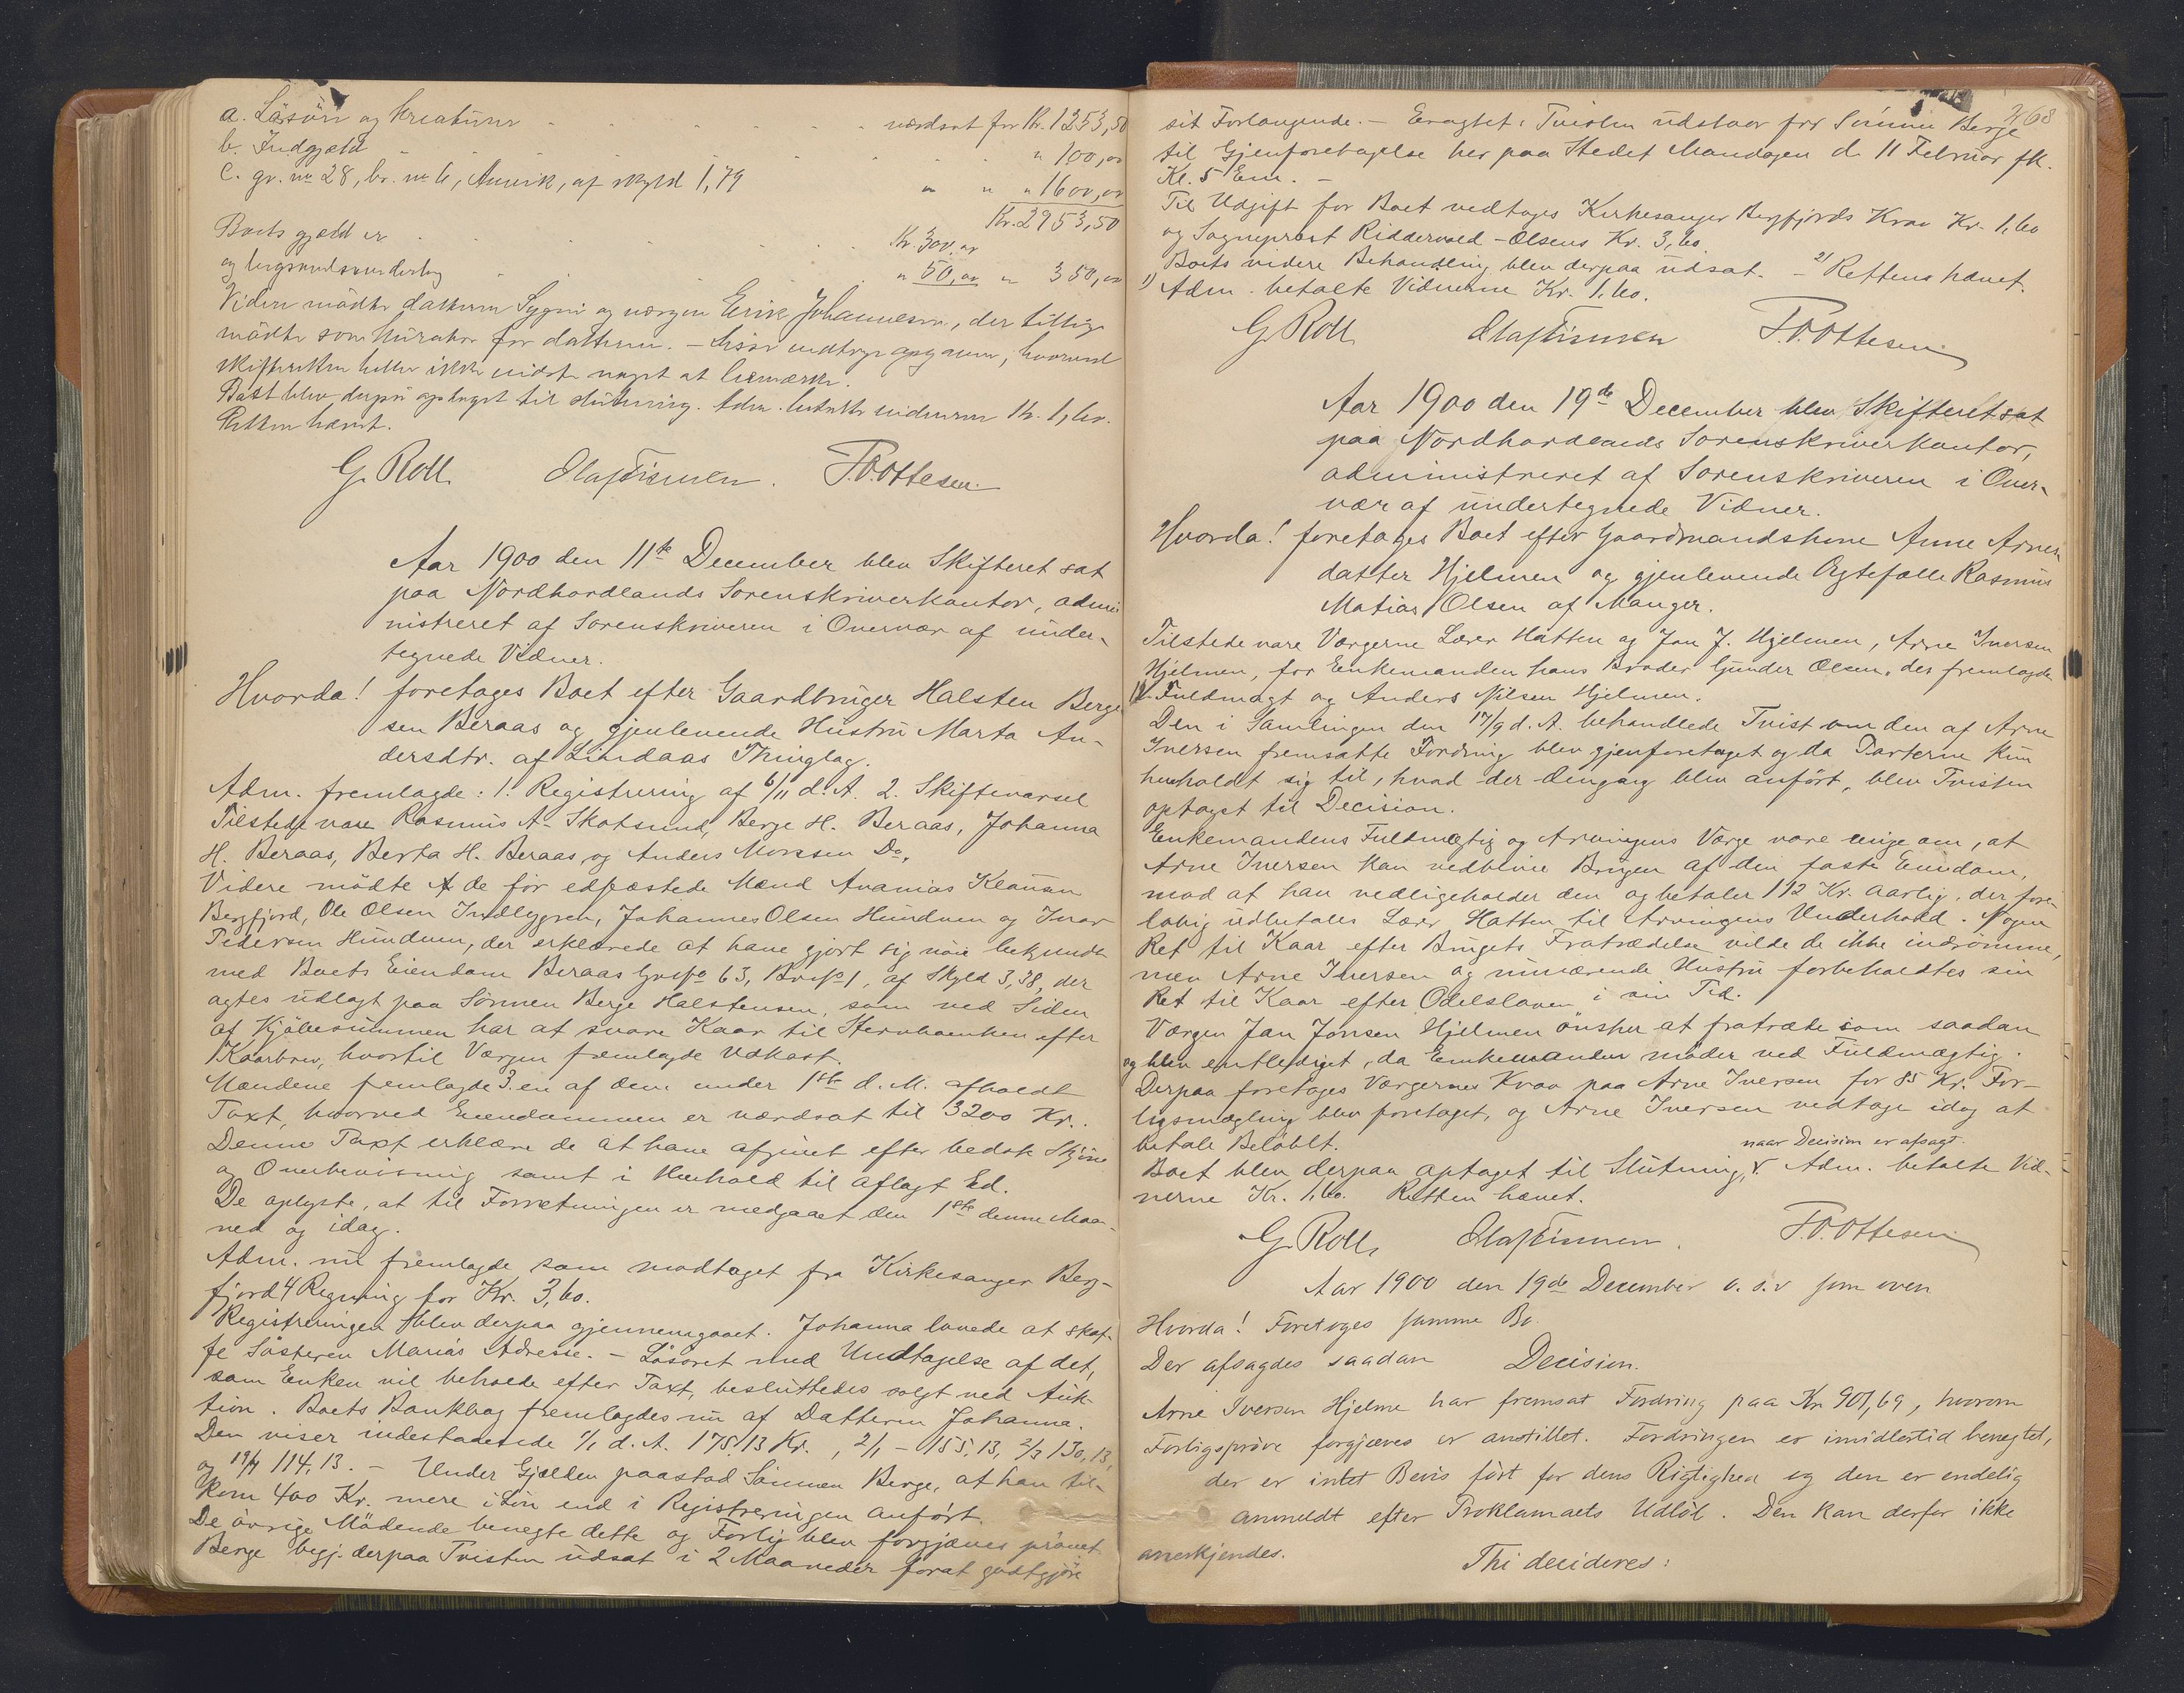 a. Løsøre og Kreaturer - - - værdsat for Kr. 1253,50
b. Indgjæld - - - " 100,00
c. gr. nr 28, br. nr 6, Annvik, af skyld 1,79 " " " 1600,00
Kr. 2953,50
Boets gjæld er - - - Kr. 300,00
og begravelsesunderlag " 50,00 " 350,00
Viden mødte datteren Sygni og værgen Erik Johannesen, der tillige
mødte som kurator for datteren. - hvorved
skifteretten heller ikke vidste noget at bemærke.
Boet blev derpå optaget til slutning. Adm. betalte vidnerne Kr. 1,60.
Retten hævet.
G. Roll Olaf Finnesen. F.O. Ottesen.
Aar 1900 den 11te December blev Skifteret sat
paa Nordhordlands Sorenskriverkontor, admi
nistreret af Sorenskriveren i Overvær af under-
tegnede Vidner.
Hvorda! foretages Boet efter Gaardbruger Halsten Berge
sen Beraas og gjenlevende Hustru Marta An-
dersdtr. af Lindaas Thinglag.
Adm. fremlagde: 1. Registrering af 6/11 d. A. 2. Skiftevarsel
Tilstede vare Rasmus A. Skotsund, Berge H. Beraas, Johanna
H. Beraas, Berta H. Beraas og Anders Monsen Do.
Videre mødte de før edfæstede Mænd Ananias Klausen
Bergfjord, Ole Olsen Indlyggren, Johannes Olsen Hundven og Ivar
Pedersen Hundven, der erklærede at have gjort sig nøie bekjendt
med Boets Eiendom Beraas Gno 63, Brno 1, af Skyld 3,38, der
agtes udlagt paa Sønnen Berge Halstensen, som ved Siden
af Kjøbesummen har at svare Kaar til Stervboenken efter
Kaarbrev, hvortil Værgen fremlagde Udkast.
Mændene fremlagde 3. en af dem under 1ste d. M. afholdt
Taxt, hvorved Eiendommen er værdsat til 3200 Kr..
Denne Taxt erklære de at have afgivet efter bedste Skjøn
og Overbevisning samt i Henhold til aflagt Ed.
De oplyste, at til Forretningen er medgaaet den 1ste denne Maa-
ned og idag.
Adm. nu fremlagde som modtaget fra Kirkesanger Berg-
fjord 4 Regning for Kr. 3,60.
Registreringen blev derpaa gjennemgaaet. Johanna lovede at skaf-
fe Søsteren Marias Adresse. - Løsøret med Undtagelse af det,
som Enken vil beholde efter Taxt, besluttedes solgt ved Auk-
tion. Boets Bankbog fremlagdes nu af Datteren Johanna.
Den viser indestaaende 1/1 d. A. 175,13 Kr., 2/1 - 155,13, 2/3 130,13,
og 19/4 114,13. - Under Gjælden paastod Sønnen Berge, at han til-
kom 400 Kr. mere i Løn end i Registreringen anført.
De øvrige Mødende benegte dette og Forlig blev forgjæves prøvet.
Berge begj. derpaa Tvisten udsat i 2 Maaneder forat godtgjøre
268
sit Forlangende. - Eragtet: Tvisten udstaar for Sønnen Berge
til Gjenforetagelse her paa Stedet Mandagen d. 11 Februar fk.
Kl. 5 Em. -
Til Udgift for Boet vedtoges Kirkesanger Bergfjords Krav Kr. 1,60
og Sogneprest Riddervold-Olsens Kr. 3,60.
Boets videre Behandling blev derpaa udsat. - 2) Rettens hævet.
1) Adm. betalte Vidnerne Kr. 1,60.
G. Roll Olaf Finnesen F.O. Ottesen
Aar 1900 den 19de December blev Skifteret sat
paa Nordhordlands Sorenskriverkontor,
administreret af Sorenskriveren i Over-
vær af undertegnede Vidner.
Hvorda! foretages Boet efter Gaardmandskone Anne Arnes
datter Hjelmen og gjenlevende Ægtefælle Rasmus
Matias Olsen af Manger.
Tilstede vare Værgerne Lærer Hatten og Jon J. Hjelmen, Arne Iversen
Hjelmen, for Enkemanden hans Broder Gunder Olsen, der fremlagde
Fuldmagt og Anders Nilsen Hjelmen.
Den i Samlingen den 17/9 d. A. behandlede Tvist om den af Arne
Iversen fremsatte Fordring blev gjenforetaget og da Parterne kun
henholdt sig til, hvad der dengang blev anført, blev Tvisten
optaget til Decision.
Enkemandens Fuldmægtig og Arvingens Værge vare enige om, at
Arne Iversen kan vedblive Brugen af den faste Eiendom,
mod at han vedligeholder den og betaler 112 Kr. aarlig, der fore-
løbig udbetales Lærer Hatten til Arvingens Underhold. Nogen
Ret til Kaar efter Brugets Fratrædelse vilde de ikke indrømme,
men Arne Iversen og nuværende Hustru forbeholdtes sin
Ret til Kaar efter Odelsloven i sin Tid.
Værgen Jan Jonsen Hjelmen ønsker at fratræde som saadan
og blev entlediget, da Enkemanden møder ved Fuldmægtig.
Derpaa foretoges Værgernes Krav paa Arne Iversen for 85 Kr. For-
ligsmægling blev foretaget, og Arne Iversen vedtoge idag at
betale Beløbet.
naar Decision er afsagt.
Boet blev derpaa optaget til Slutning, v. Adm. betalte Vid-
nerne Kr. 1,60. Retten hævet.
G. Roll Olaf Finnesen. F.O. Ottesen
Aar 1900 den 19de December o. s. v som oven
Hvorda! Foretoges samme Bo.
Der afsagdes saadan Decision.
Arne Iversen Hjelme har fremsat Fordring paa Kr 901,69, hvorom
Forligsprøve forgjæves er anstillet. Fordringen er imidlertid benegtet,
der er intet Bevis ført for dens Rigtighed og den er endelig
anmeldt efter Proklamaets Udløb. Den kan derfor ikke
anerkjendes.
Thi decideres: